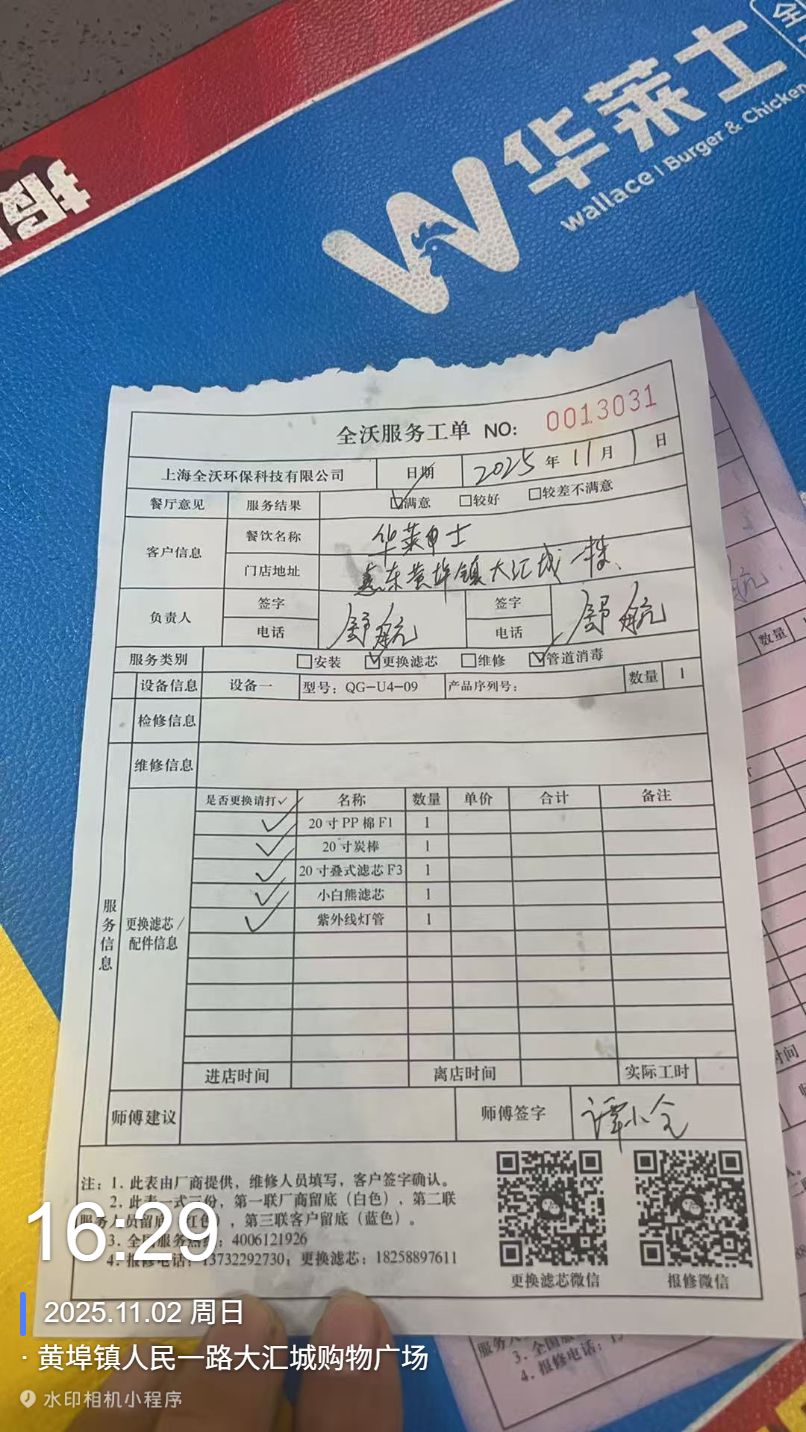 华莱士
wallace | Burger & Chicken
全沃服务工单 NO: 0013031
上海全沃环保科技有限公司 日期 2025年11月1日
餐厅意见 服务结果 ☑满意 □较好 □较差不满意
客户信息 餐饮名称 华莱士
门店地址 惠东黄埠镇大汇城一楼
负责人 签字 舒航 签字 舒航
电话 电话
服务类别 □安装 ☑更换滤芯 □维修 ☑管道消毒
设备信息 设备一 型号：QG-U4-09 产品序列号： 数量 1
检修信息
维修信息
服务信息
更换滤芯/配件信息
是否更换请打✓ 名称 数量 单价 合计 备注
✓ 20寸PP棉F1 1
✓ 20寸炭棒 1
✓ 20寸叠式滤芯F3 1
✓ 小白熊滤芯 1
✓ 紫外线灯管 1
进店时间 离店时间 实际工时
师傅建议 师傅签字 谭小全
注：1. 此表由厂商提供，维修人员填写，客户签字确认。
2. 此表一式三份，第一联厂商留底（白色），第二联
服务人员留底（红色），第三联客户留底（蓝色）。
3. 全国服务热线：4006121926
4. 报修电话：13732292730；更换滤芯：18258897611
更换滤芯微信 报修微信
数量
时间
3. 全国
4. 报修电话：
16:29
2025.11.02 周日
· 黄埠镇人民一路大汇城购物广场
水印相机小程序